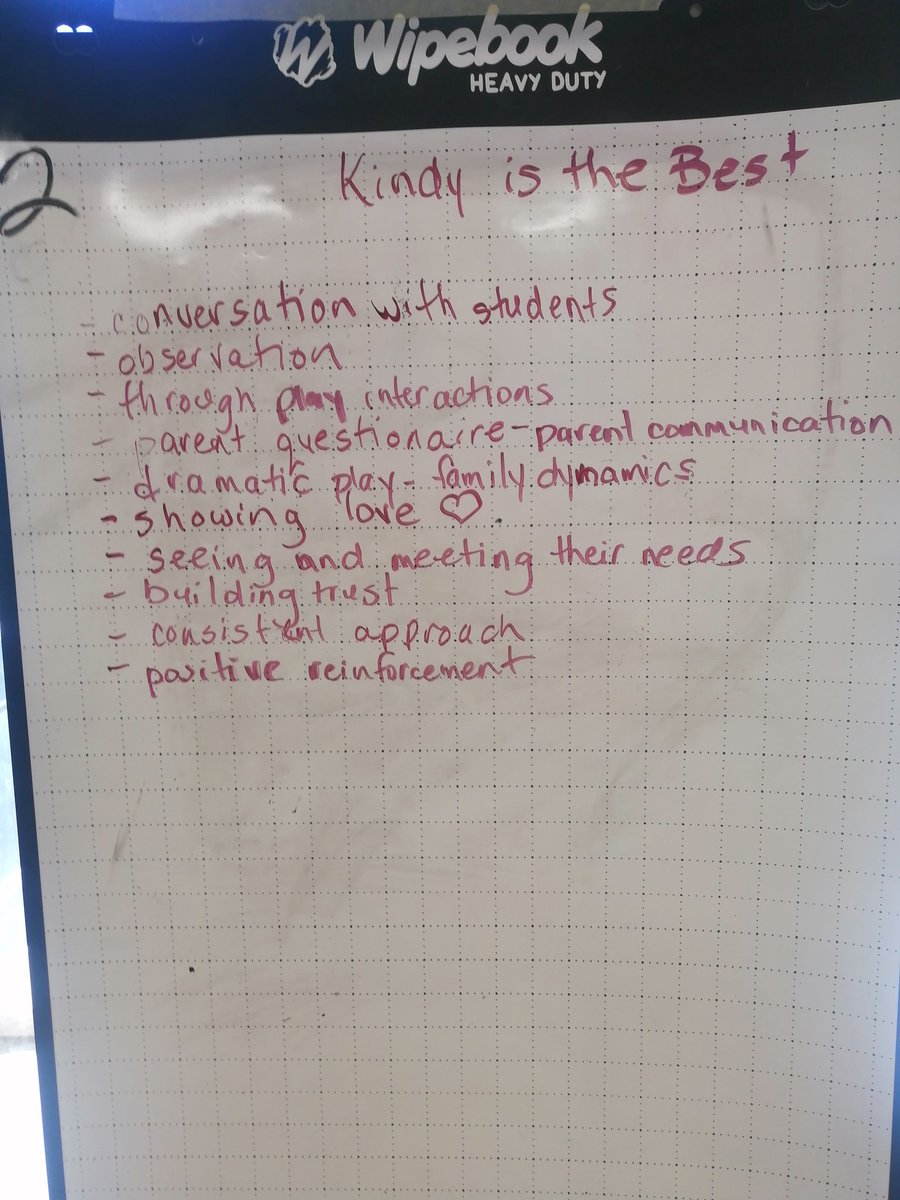 Wipebook
HEAVY DUTY
2
Kindy is the Best
- conversation with students
- observation
- through play interactions
- parent questionaire - parent communication
- dramatic play - family dynamics
- showing love ♡.
- seeing and meeting their needs
- building trust
- consistent approach
- positive reinforcement